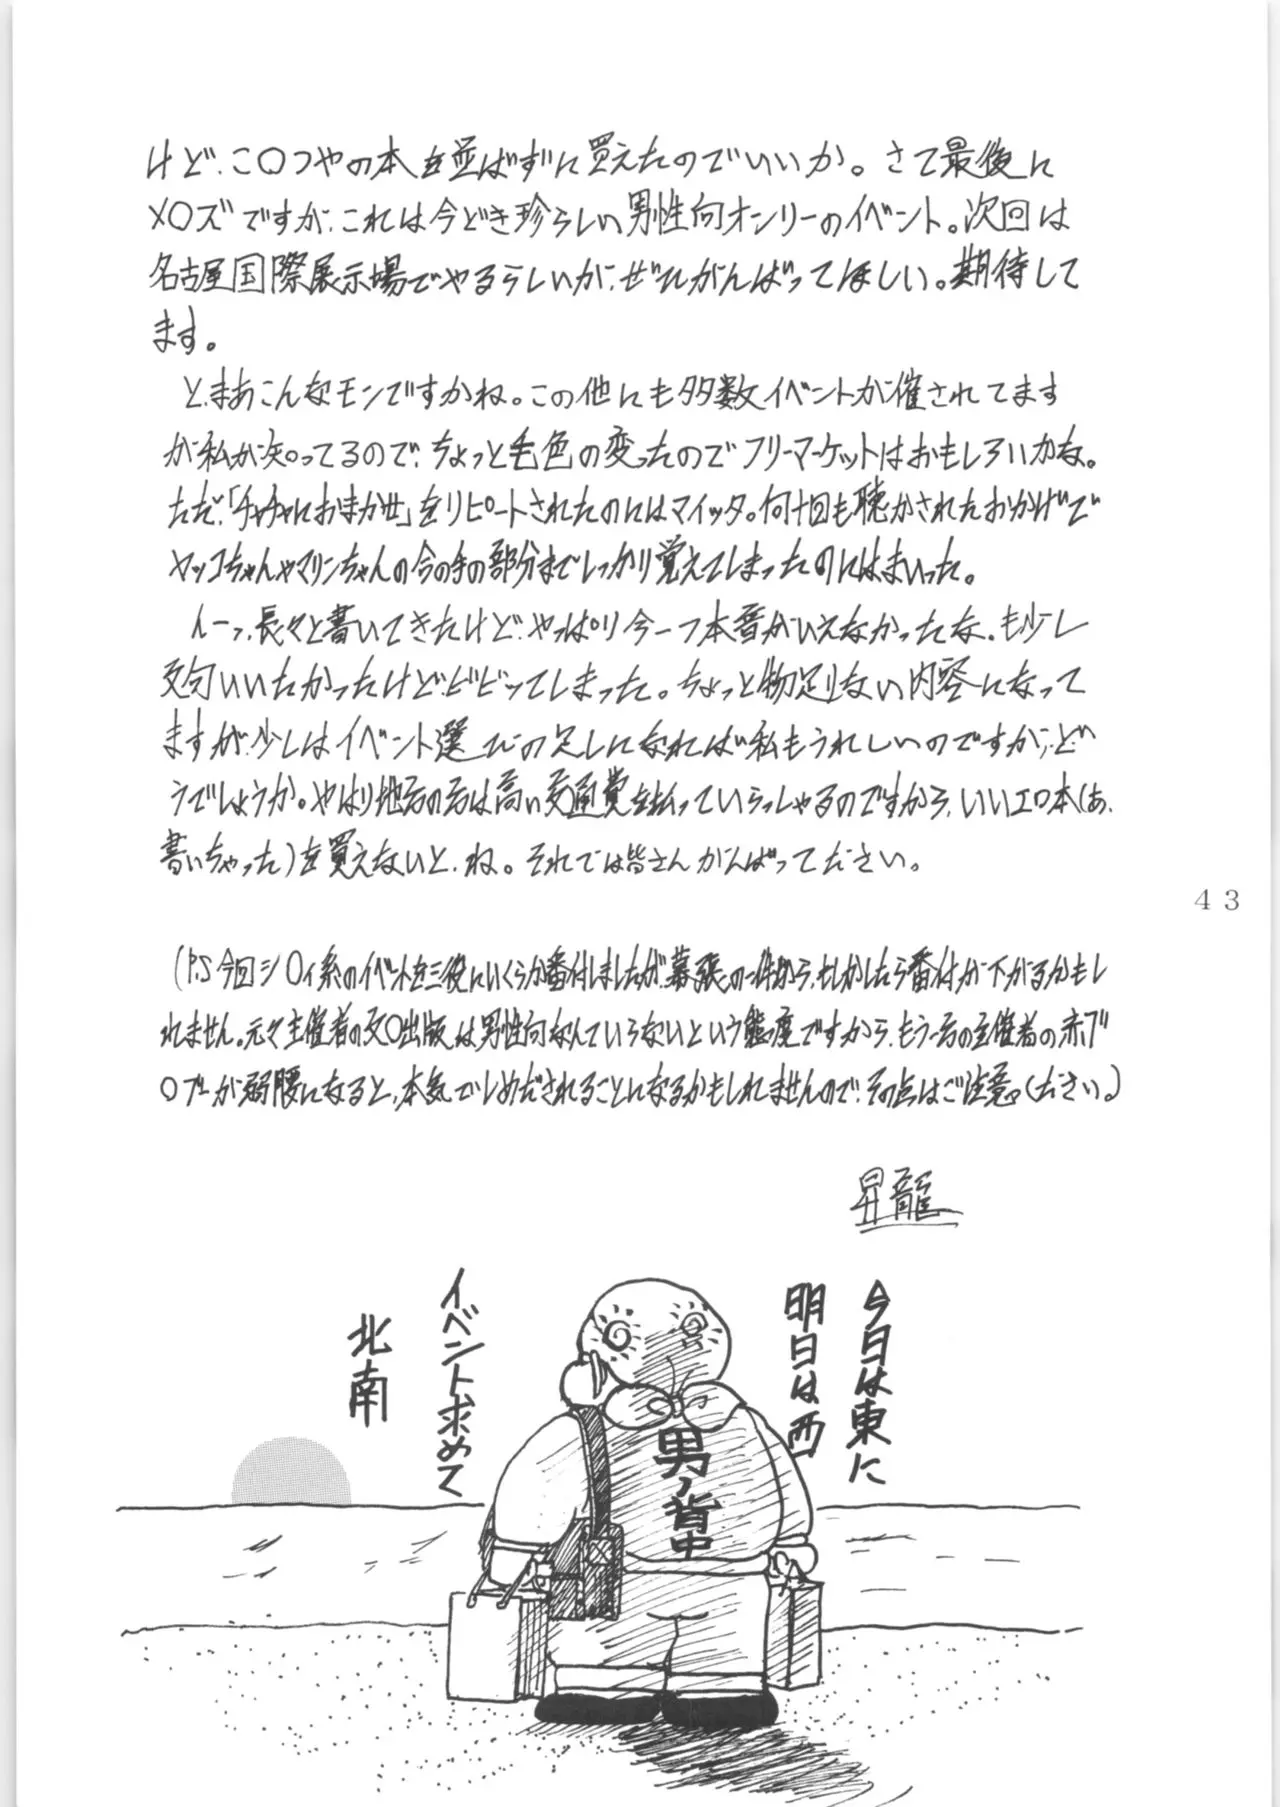 けど、こ〇つやの本を並ばずに買えたのでいいか。さて最後に
メ〇ズですが、これは今どき珍らしい男性向オンリーのイベント。次回は
名古屋国際展示場でやるらしいが、ぜひがんばってほしい。期待して
ます。
と、まあこんなモンですかね。この他にも多数イベントが催されてます
が私が知ってるので、ちょっと毛色の変ったのでフリーマーケットはおもしろいかな。
ただ、「チャチャにおまかせ」をリピートされたのにはマイッタ。何十回も聴かされたおかげで
ヤッコちゃんやマリンちゃんの合の手の部分までしっかり覚えてしまったのにはまいった。
んーっ、長々と書いてきたけど、やっぱり今一つ本音がいえなかったな。も少し
文句いいたかったけど、ビビッてしまった。ちょっと物足りない内容になって
ますが、少しはイベント選びの足しになれば私もうれしいのですが、ど
うでしょうか。やはり地方の方は高い交通費を払っていらっしゃるのですから、いいエロ本(あ、
書いちゃった)を買えないと、ね。それでは皆さんがんばってください。
(P.S今回シ〇ィ系のイベントを三役にいくらか番付しましたが、幕張の一件から、もしかしたら番付が下がるかもし
れません。元々主催者の文〇出版は男性向なんていらないという態度ですから、もう一方の主催者の赤ブ
〇ブーが弱腰になると、本気でしめだされることになるかもしれませんので、その点はご注意ください。)
昇龍
今日は東に
明日は西
イベント求めて
北南
男ノ背中
43